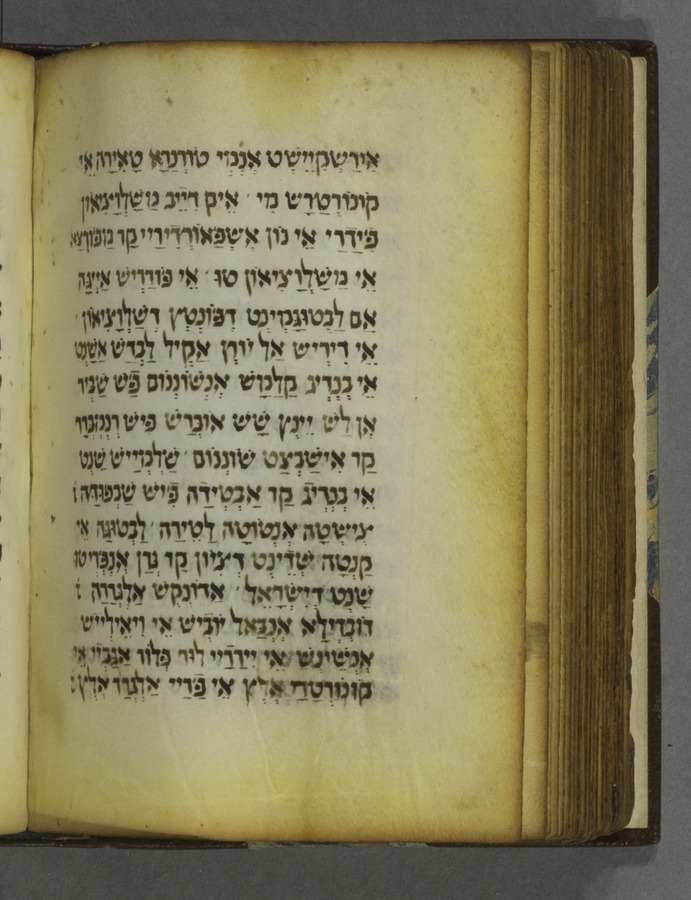 אירשקיישט אנמי טורנרא טאירה אי
קונורטרש מי איק דייב משלוציאון
פידרי אי נון אשפאורדיריי קר מפורצא
אי משלוציאון טו אי פודריש אייגה
אם לבטוגמינט דפונטץ דשלוציאון
אי דיריש אל יורן אקיל לבדש אשנט
אי בנדיג קלמש אנשונום פש שביר
אן לש יינץ שש אוברש פיש רנמברר
קר אישבצט שונום שלמייש שנט
אי בנדיג קר אבטידה פיש שבפודה
צישטה אנטוטה לטירה לבטוגה אי
קנטה שדינט דציון קר גרן אנפריטו
שנט דישראל אדונקש אלגרה
דונדילא אנבאל יוביש אי ויאילייש
אנשינש אי יירריי לור פלור אגביי אי
קונורטרי אלץ אי פריי אלגרר אלץ